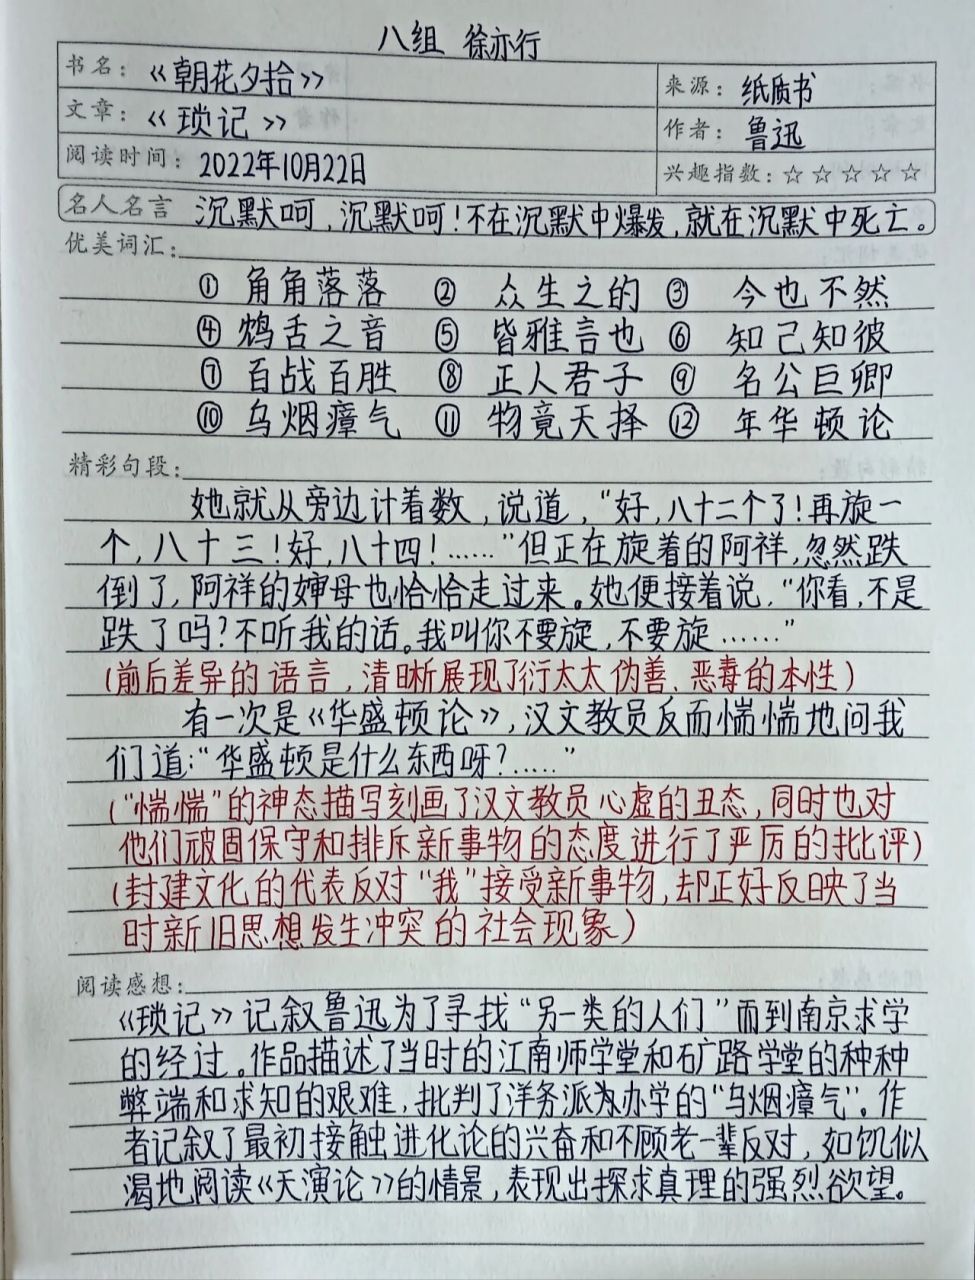 八组 徐亦行
书名：《朝花夕拾》 来源：纸质书
文章：《琐记》 作者：鲁迅
阅读时间：2022年10月22日 兴趣指数：☆☆☆☆☆
名人名言 沉默呵，沉默呵！不在沉默中爆发，就在沉默中死亡。
优美词汇：
① 角角落落 ② 众生之的 ③ 今也不然
④ 鴂舌之音 ⑤ 皆雅言也 ⑥ 知己知彼
⑦ 百战百胜 ⑧ 正人君子 ⑨ 名公巨卿
⑩ 乌烟瘴气 ⑪ 物竟天择 ⑫ 年华顿论
精彩句段：
她就从旁边计着数，说道，“好，八十二个了！再旋一
个，八十三！好，八十四！……”但正在旋着的阿祥，忽然跌
倒了，阿祥的婶母也恰恰走过来。她便接着说，“你看，不是
跌了吗？不听我的话。我叫你不要旋，不要旋……”
（前后差异的语言，清晰展现了衍太太伪善、恶毒的本性）
有一次是《华盛顿论》，汉文教员反而惴惴地问我
们道：“华盛顿是什么东西呀？……”
（“惴惴”的神态描写刻画了汉文教员心虚的丑态，同时也对
他们顽固保守和排斥新事物的态度进行了严厉的批评）
（封建文化的代表反对“我”接受新事物，却正好反映了当
时新旧思想发生冲突的社会现象）
阅读感想：
《琐记》记叙鲁迅为了寻找“另一类的人们”而到南京求学
的经过。作品描述了当时的江南师学堂和矿路学堂的种种
弊端和求知的艰难，批判了洋务派为办学的“乌烟瘴气”。作
者记叙了最初接触进化论的兴奋和不顾老一辈反对，如饥似
渴地阅读《天演论》的情景，表现出探求真理的强烈欲望。